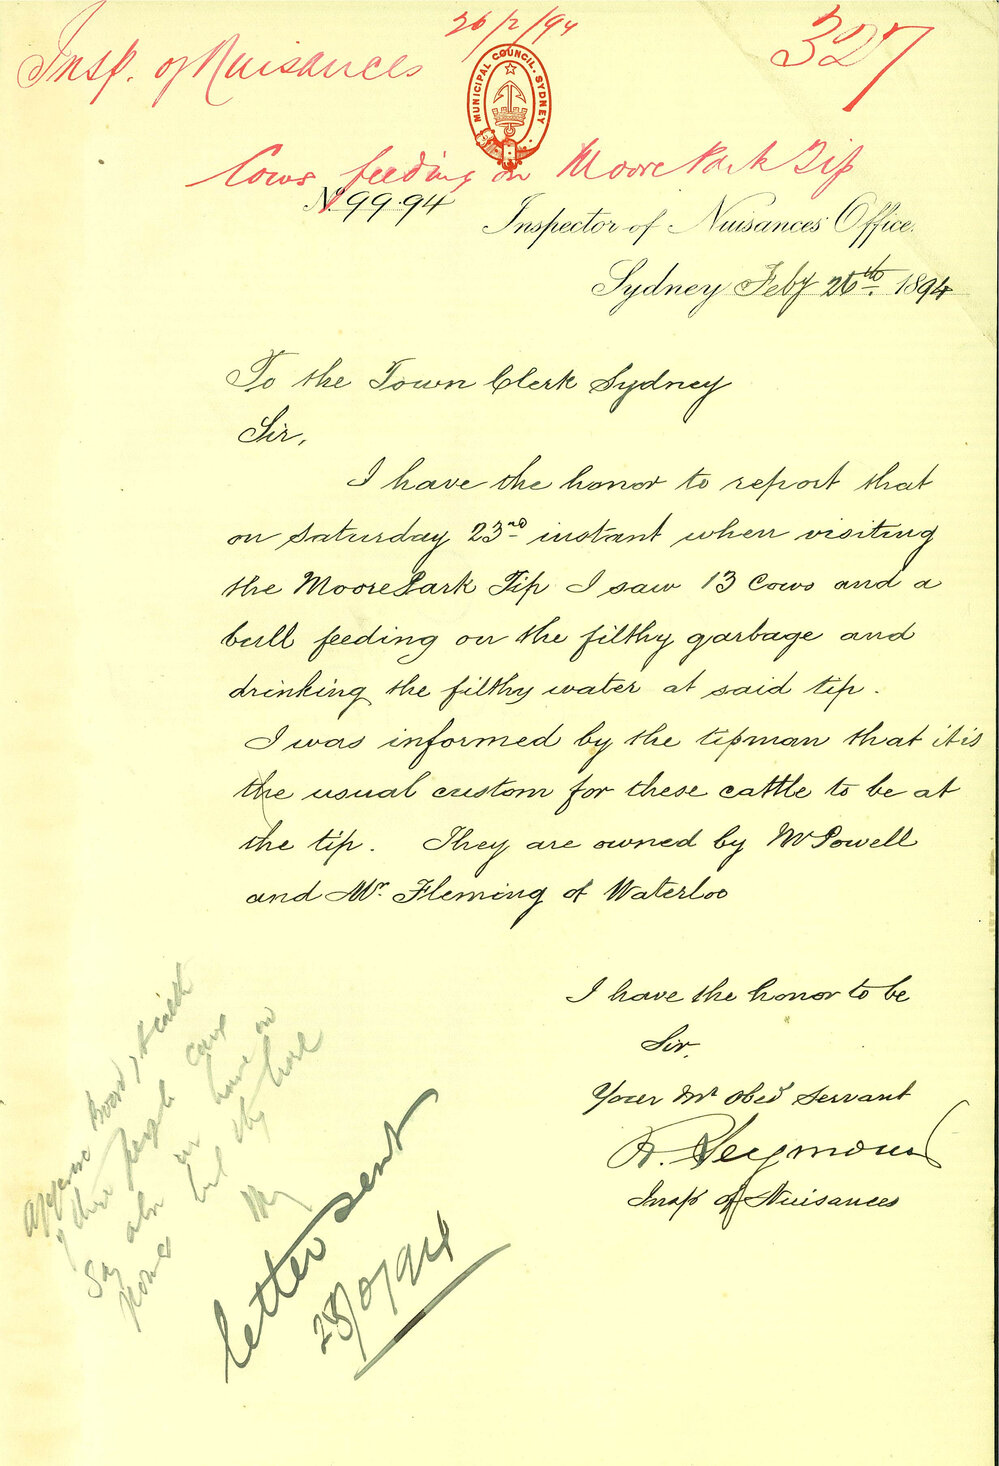 26/2/94
Insp. of Nuisances
327
MUNICIPAL COUNCIL. SYDNEY
Cows feeding on Moore Park Tip
No. 99.94
Inspector of Nuisances Office.
Sydney Feby 26th. 1894
To the Town Clerk Sydney
Sir,
I have the honor to report that
on Saturday 23rd instant when visiting
the Moore Park Tip I saw 13 Cows and a
bull feeding on the filthy garbage and
drinking the filthy water at said tip.
I was informed by the tipman that it is
the usual custom for these cattle to be at
the tip. They are owned by Mr Powell
and Mr. Fleming of Waterloo
I have the honor to be
Sir.
Your Mt Obed servant
R. Seymour
Insp of Nuisances
Board Health
these people
letter sent